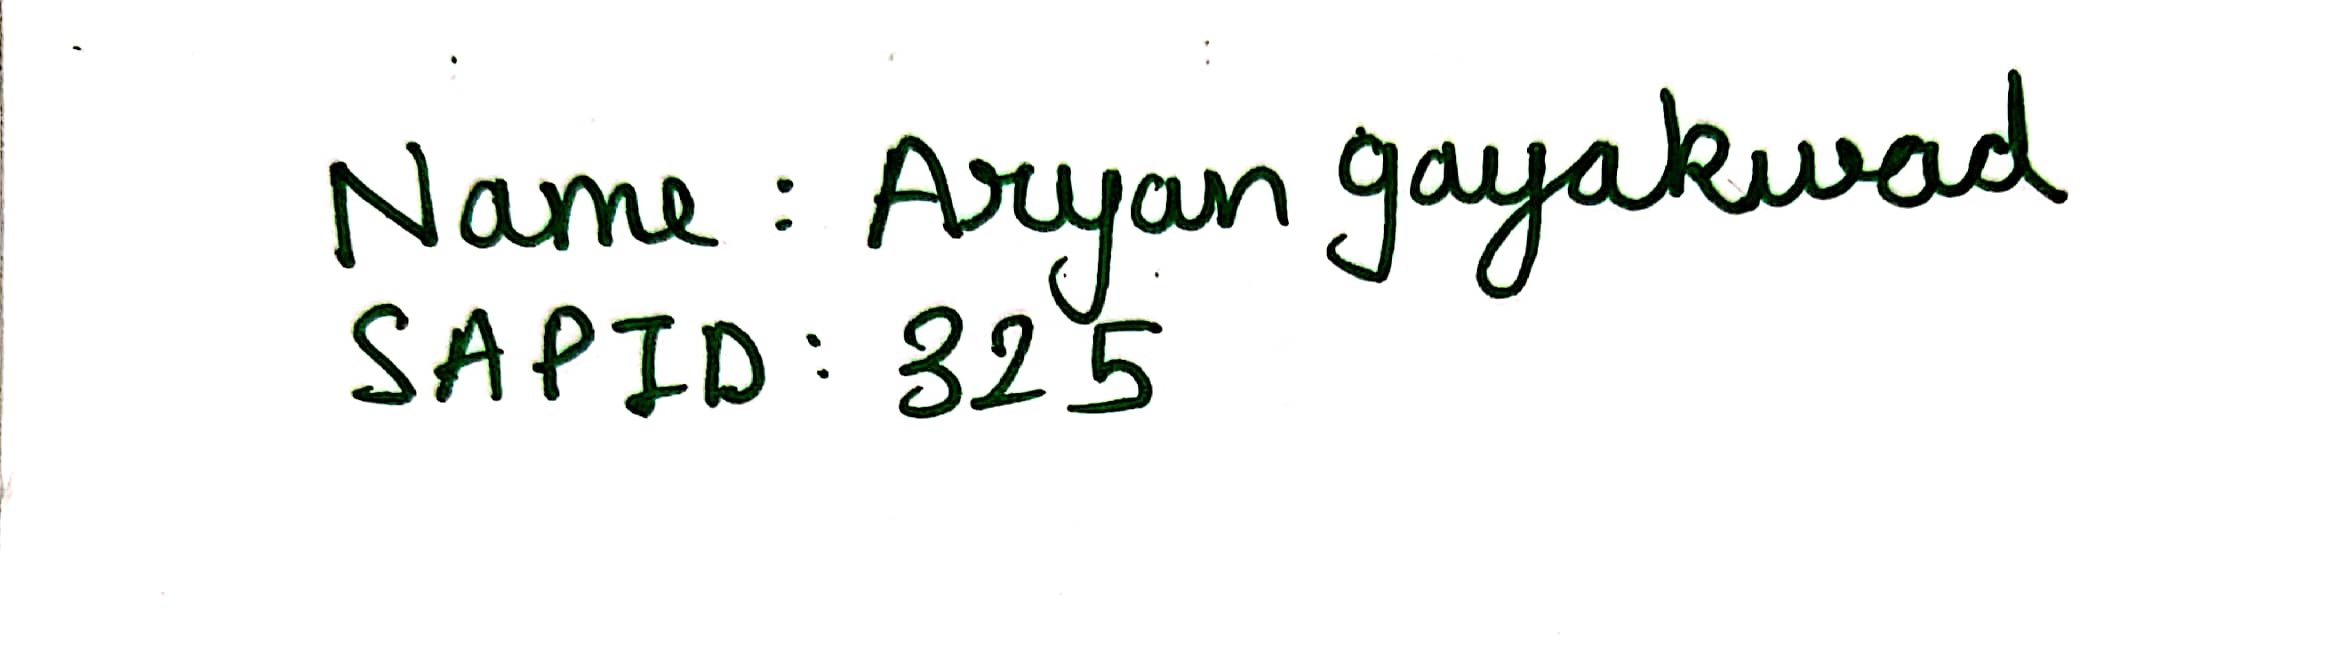 Name : Aryan gayakwad
SAPID : 325